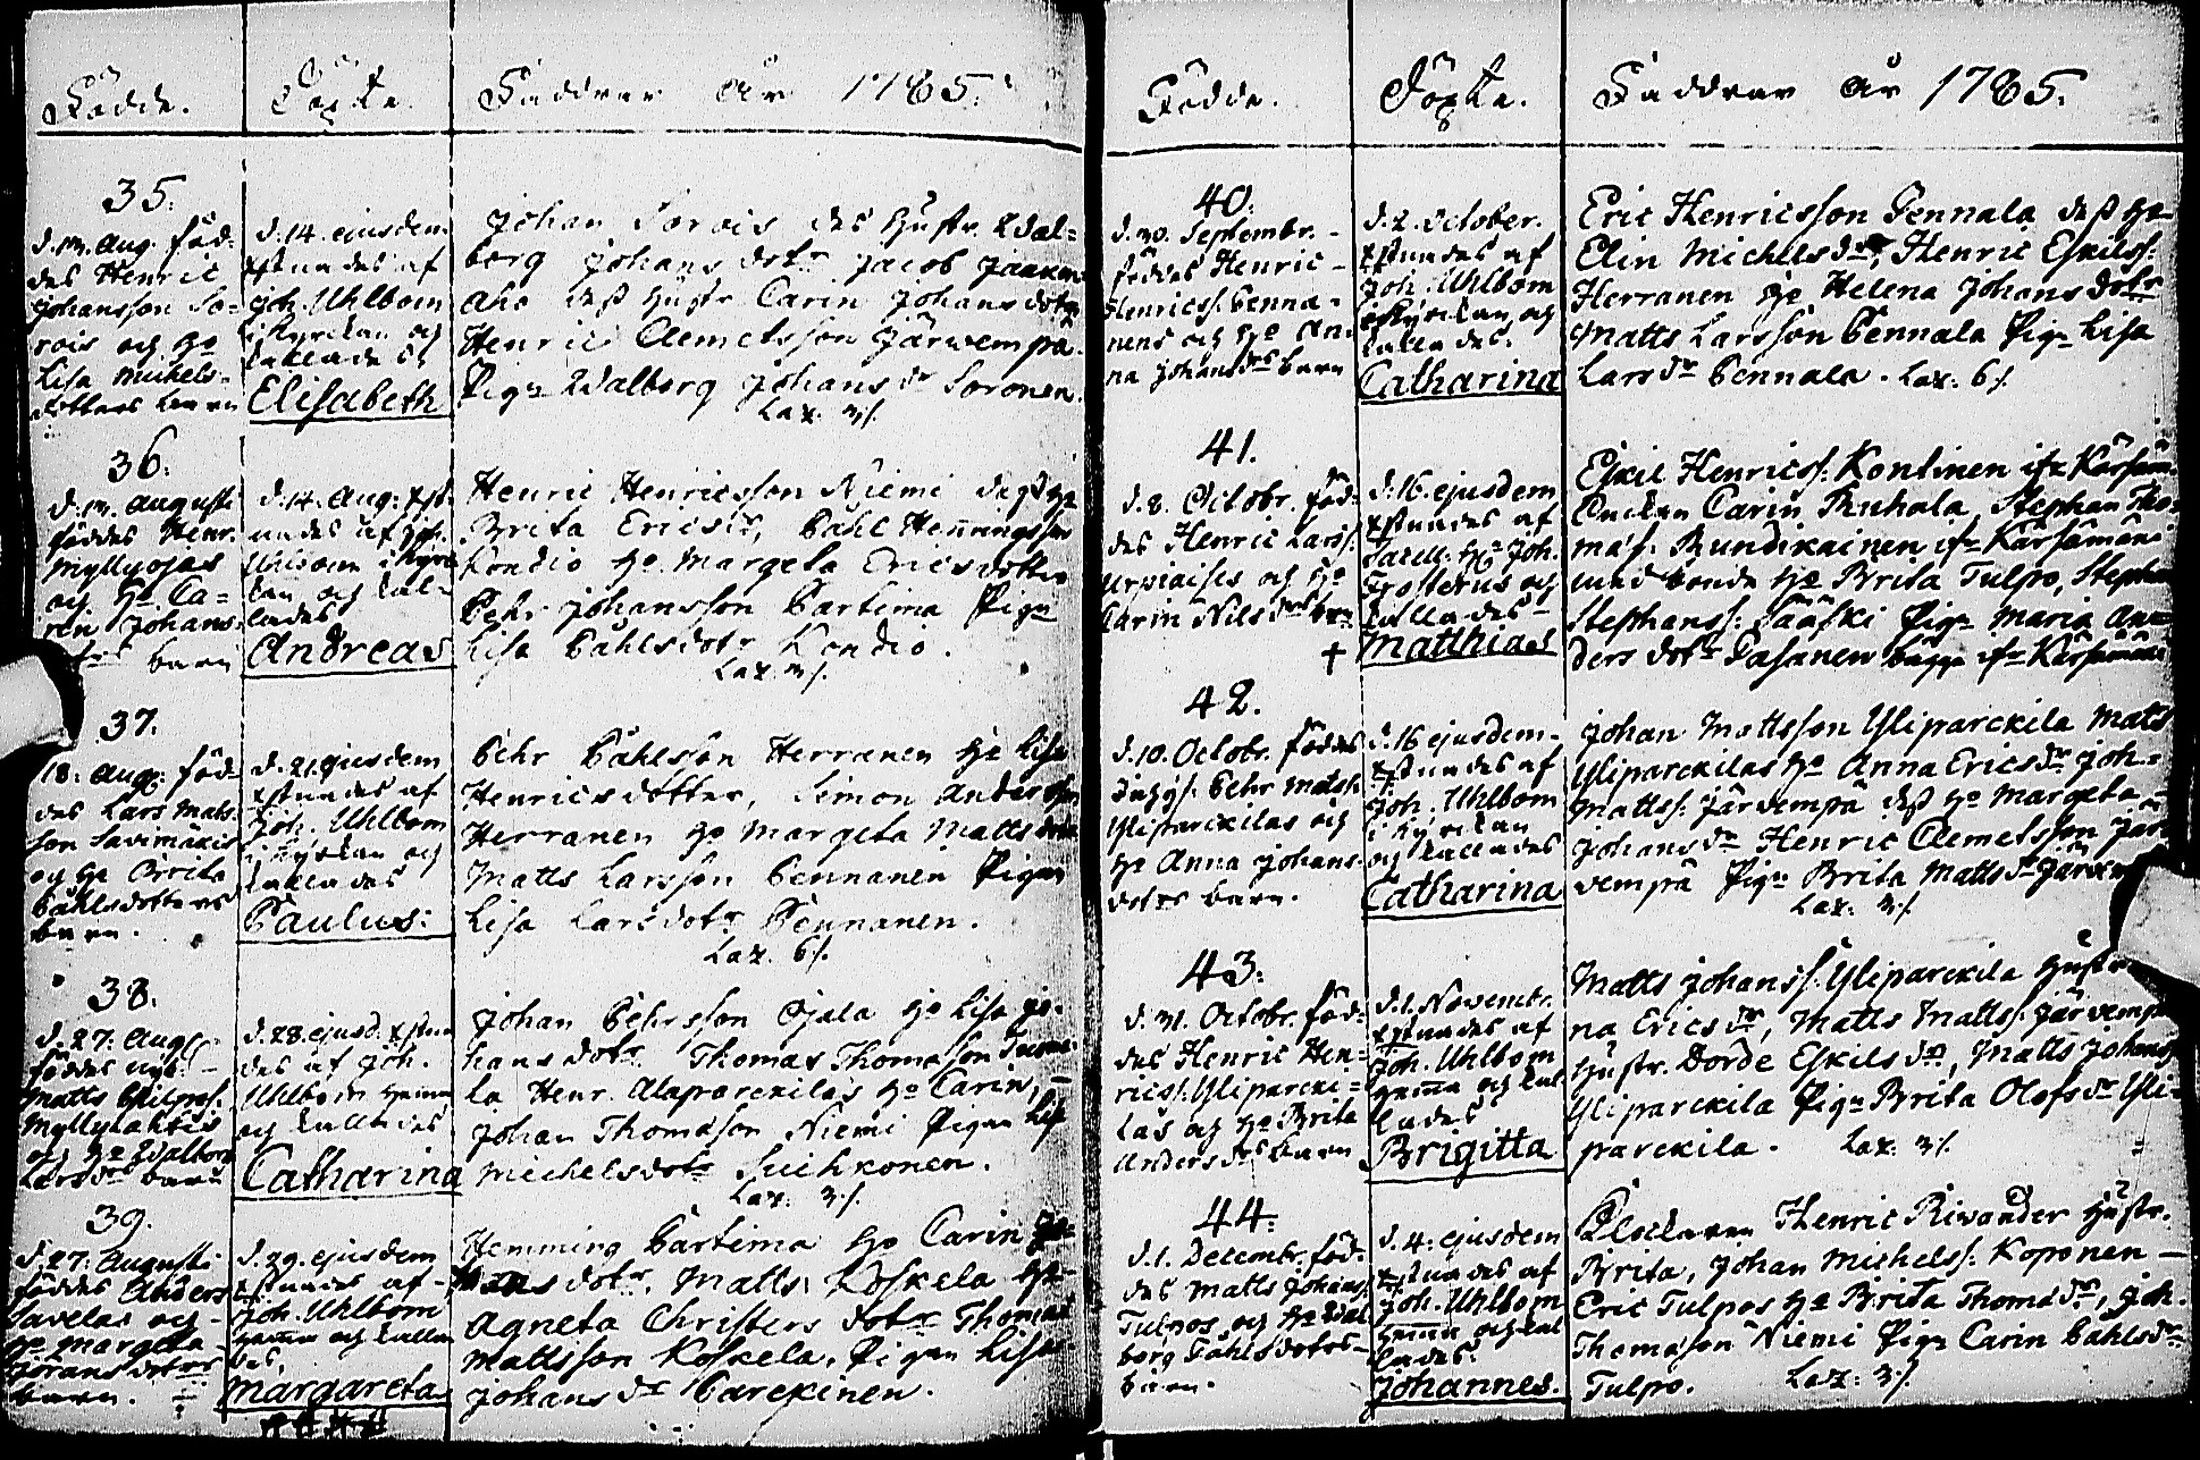 Födde.
Döpte.
Faddrar År 1785.
35.
d. 13. Aug. föd-
des Henric
Johansson So-
rois og Ho
Lisa Michels-
dotters barn
d. 14. ejusdem
Xstnades af
Joh. Uhlbom
i Kyrckan og
kallades
Elisabeth
Johan Sorois des Hustr. Wal-
borg Johans dotr Jacob
aho dess Hustr Carin Johans dotr
Henric Clemetsson Järwempä
Pign Walborg Johans dr Soronen.
Lax. 3/.
36.
d. 13. Augusti
föddes Henr.
Myllyojas
og Ho Ca-
rin Johans
barn
d. 14. Aug: Xst-
nades af Joh.
Uhlbom i Kyrc
kan og kal-
lades
Andreas
Henric Henricsson Niemi dess Ho
Brita Ericsdr, Påhl Henningsson
Kondio Ho Margeta Ericsdotter
Pehr Johansson Partima Pign
Lisa Påhlsdotr Kondio.
Lax. 3/.
37.
18. Aug: föd-
des Lars Mats-
son Savimäkis
og Ho Brita
Påhlsdotters
barn.
d. 21. ejusdem
Xstnades af
Joh. Uhlbom
i Kyrckan og
kallades
Paulus:
Pehr Påhlsson Herranen Ho Lisa
Henricsdotter, Simon Andersson
Herranen Ho Margeta Matts dotr
Matts Larsson Pennanen Pigan
Lisa Larsdotr Pennanen.
Lax. 6/.
38.
d. 27. Aug:
föddes nyb:
Matts Philpss.
Myllylahtis
og Ho Walborg
Larsdrs barn
d. 28. ejusd. Xstna
des af Joh.
Uhlbom hemma
og kallades
Catharina
Johan Pehrsson Ojala Ho Lisa Jo-
hansdotr Thomas Thomasson
la Henr. Alaparckilas Ho Carin,
Johan Thomasson Niemi Pigan Lisa
Michelsdotr Suihkonen.
Lax: 3/.
39.
d. 27. Augusti
föddes Anders
Savelas og
Ho Margeta
Jöransdotrs
barn.
d. 29. ejusdem
Xstnades af
Joh. Uhlbom
hemma og kalla
des,
Margareta
Hemming Partima Ho Carin Jo-
hans dotr. Matts Koskela Ho
Agneta Christers dotr Thomas
Mattsson Koskela. Pigan Lisa
Johans dr Parckinen.
Födde.
Döpte.
Faddrar År 1785.
40.
d. 30. Septembr.
föddes Henric
Henricss. Penna-
nens og Ho An-
na Johansdrs barn
d. 2. October.
Xstnades af
Joh. Uhlbom
i Kyrckan og
kallades.
Catharina
Eric Henricsson Pennala dess Ho
Elin Michelsdr, Henric Eskilss.
Herranen Ho Helena Johans dotr
Matts Larsson Pennala Pign Lisa
Lars dr Pennala. Lax. 6/.
41.
d. 8. Octobr. föd-
des Henric Larss.
Urpiaises og Ho
Carin Nils drs barn
†
d. 16. ejusdem
Xstnades af
Hr Joh.
Frosterus og
kallades
Matthias
Eskil Henricss. Kontinen ifr Kärsäm
Enckan Carin Ruhala, Stephan Tho-
mass. Rundikainen ifr Kärsämäki
med bonde Ho Brita Tulpo, Stephan
Stephanss. Sääski Pign Maria An-
ders dotr Pasanen bägge ifr Kärsämäki
42.
d. 10. Octobr. föddes
Pehr Matss.
Yliparckilas og
Ho Anna Johans-
dotrs barn.
d. 16 ejusdem
Xstnades af
Joh. Uhlbom
i Kyrckan
og kallades
Catharina
Johan Mattsson Yliparckila Matts
Yliparckilas Ho Anna Ericsdr Joh.
Mattss. Järvempä dess Ho Margeta
Johansdr Henric Clemetsson Jär
vempä Pign Brita Mattsdr Järvem
Lax. 3/.
43.
d. 31. Octobr. föd-
des Henric Hen-
ricss. Yliparcki-
las og Ho Brita
Andersdrs barn
d. 1. Novembr.
Xstnades af
Joh. Uhlbom
hemma og kal
lades
Brigitta
Matts Johanss. Yliparckila Hustr
na Ericsdr, Matts Mattss. Järvempä
Hustr. Dorde Eskils dr, Matts Johanss
Yliparckila Pign Brita Olofs dr Yli-
parckila. Lax. 3/.
44.
d. 1. Decembr. föd-
des Matts Johans
Tulpos og Ho Wal
borg Påhlsdotrs
barn.
d. 4. ejusdem
Xstnades af
Joh. Uhlbom
hemma og kal
lades.
Johannes.
Clockaren Henric Rivander Hustr.
Brita, Johan Michelss. Koponen
Eric Tulpos Ho Brita Thomædr, Joh.
Thomasson Niemi Pign Carin Påhlsdr
Tulpo. Lax: 3/.